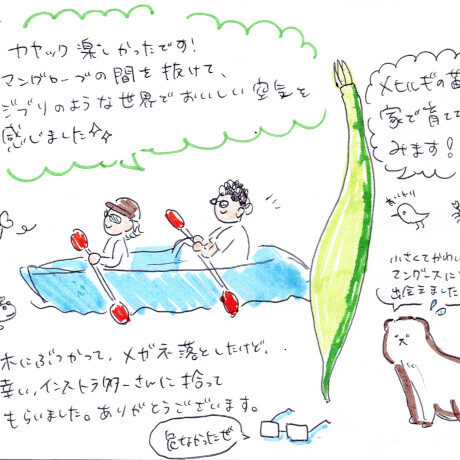 カヤック楽しかったです!
マングローブの間を抜けて、
ジブリのような世界でおいしい空気を
感じました
メヒルギの苗
家で育てて
みます!
小さくてかわい
マングースに
出会えました
木にぶつかって、メガネ落としたけど、
幸い、インストラクターさんに拾って
もらいました。ありがとうございます。
危なかったぜ